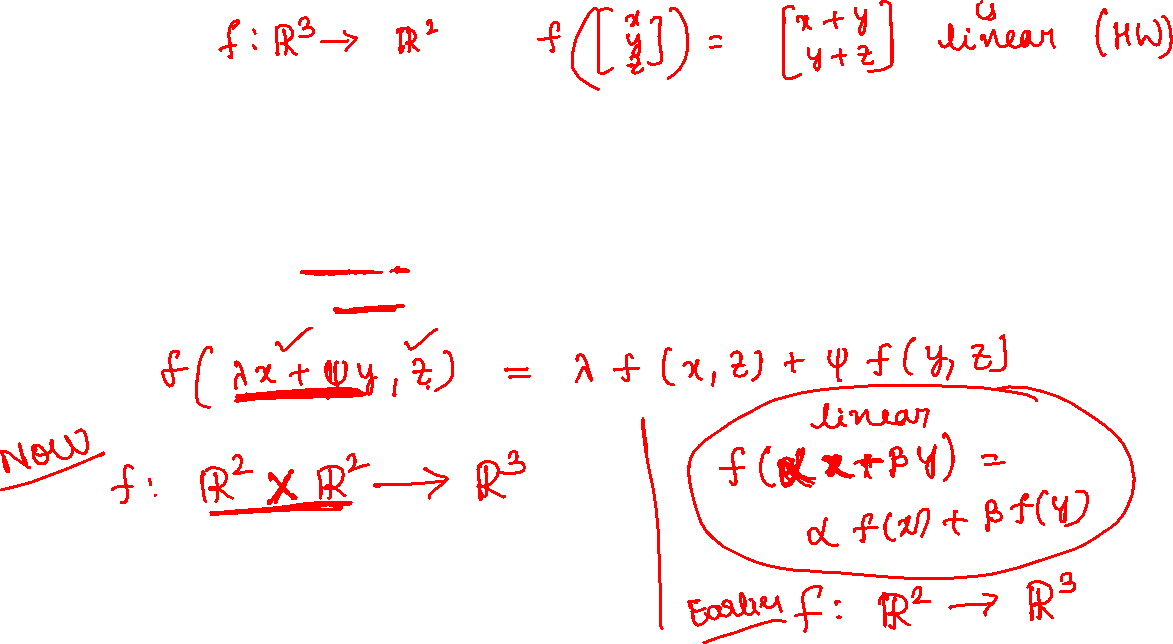 f : ℝ³ → ℝ² f([x y z]) = [x + y y + z] is linear (HW)
f(λx + ψy, z) = λ f(x, z) + ψ f(y, z]
Now f : ℝ² × ℝ² → ℝ³
linear
f(αx + βy) =
α f(x) + β f(y)
Earlier f : ℝ² → ℝ³